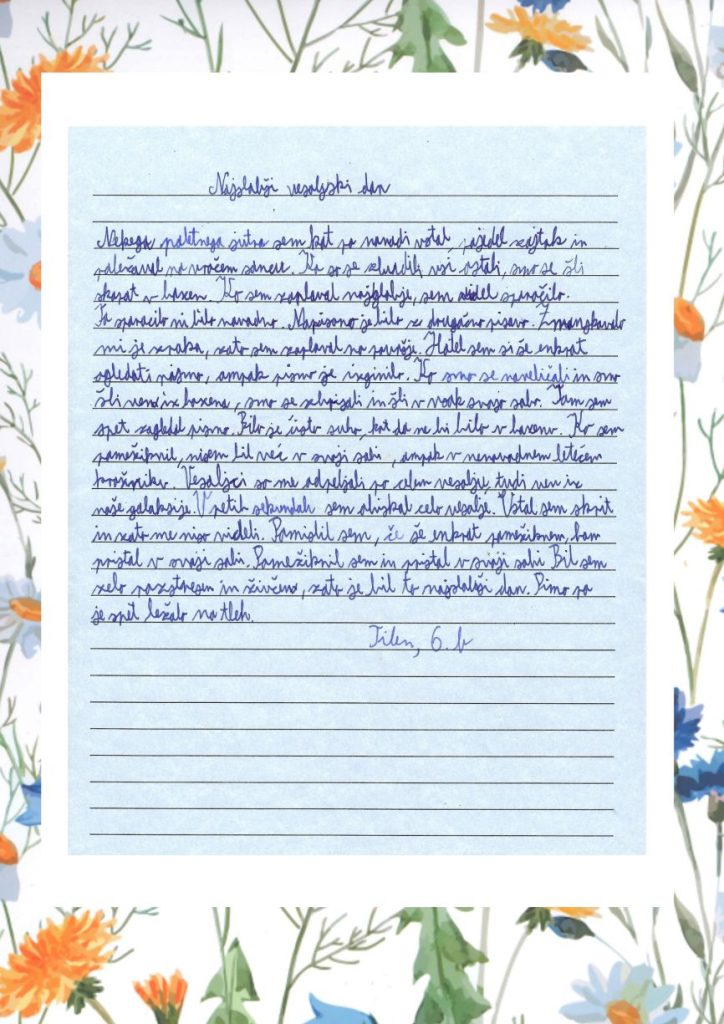 Najslabši vesoljski dan
Nekega poletnega jutra sem kot po navadi vstal, pojedel zajtrk in
poležaval na vročem soncu. Ko so se zbudili vsi ostali, smo se šli
skopat v bazen. Ko sem zaplaval najgloblje, sem videl sporočilo.
To sporočilo ni bilo navadno. Napisano je bilo z drugačno pisavo. Zmanjkovalo
mi je zraka, zato sem zaplaval na površje. Hotel sem si še enkrat
ogledati pismo, ampak pismo je izginilo. Ko smo se naveličali in smo
šli ven iz bazena, smo se obrisali in šli v vsak svojo sobo. Tam sem
spet zagledal pismo. Bilo je čisto suho, kot da ne bi bilo v bazenu. Ko sem
pomežiknil, nisem bil več v svoji sobi, ampak v nenavadnem letečem
krožniku. Vesoljci so me odpeljali po celem vesolju, tudi ven iz
naše galaksije. V petih sekundah sem obiskal celo vesolje. Ostal sem skrit
in zato me niso videli. Pomislil sem, če še enkrat pomežiknem, bom
pristal v svoji sobi. Pomežiknil sem in pristal v svoji sobi. Bil sem
zelo razstresen in živčen, zato je bil to najslabši dan. Pismo pa
je spet ležalo na tleh.
Tilen, 6. b